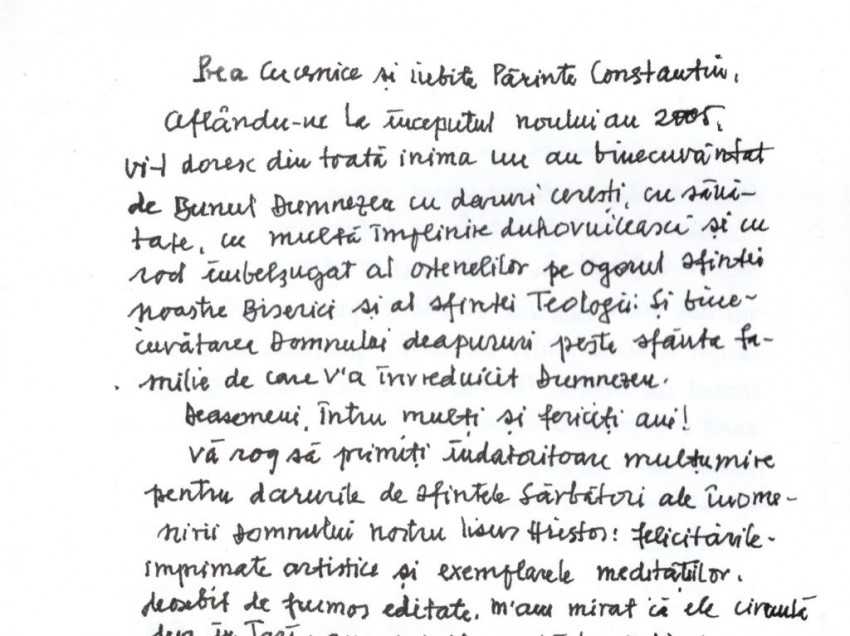 Prea Cucernice și iubite Părinte Constantin,
Aflându-ne la începutul noului an 2005,
vi-l doresc din toată inima un an binecuvântat
de Bunul Dumnezeu cu daruri cerești, cu sănă-
tate, cu multă împlinire duhovnicească și cu
rod îmbelșugat al ostenelilor pe ogorul sfintei
noastre Biserici și al sfintei Teologii. Și bine-
cuvâtarea Domnului deapururi peste sfânta fa-
milie de care V'a învreduicit Dumnezeu.
Deasemeni, întru mulți și fericiți ani!
Vă rog să primiți îndatoritoare mulțumire
pentru darurile de sfintele Sărbători ale înome-
nirii Domnului nostru Iisus Hristos: felicitările-
imprimate artistice și exemplarele meditațiilor,
deosebit de frumos editate. M'am mirat că ele circulă
deja în Țară